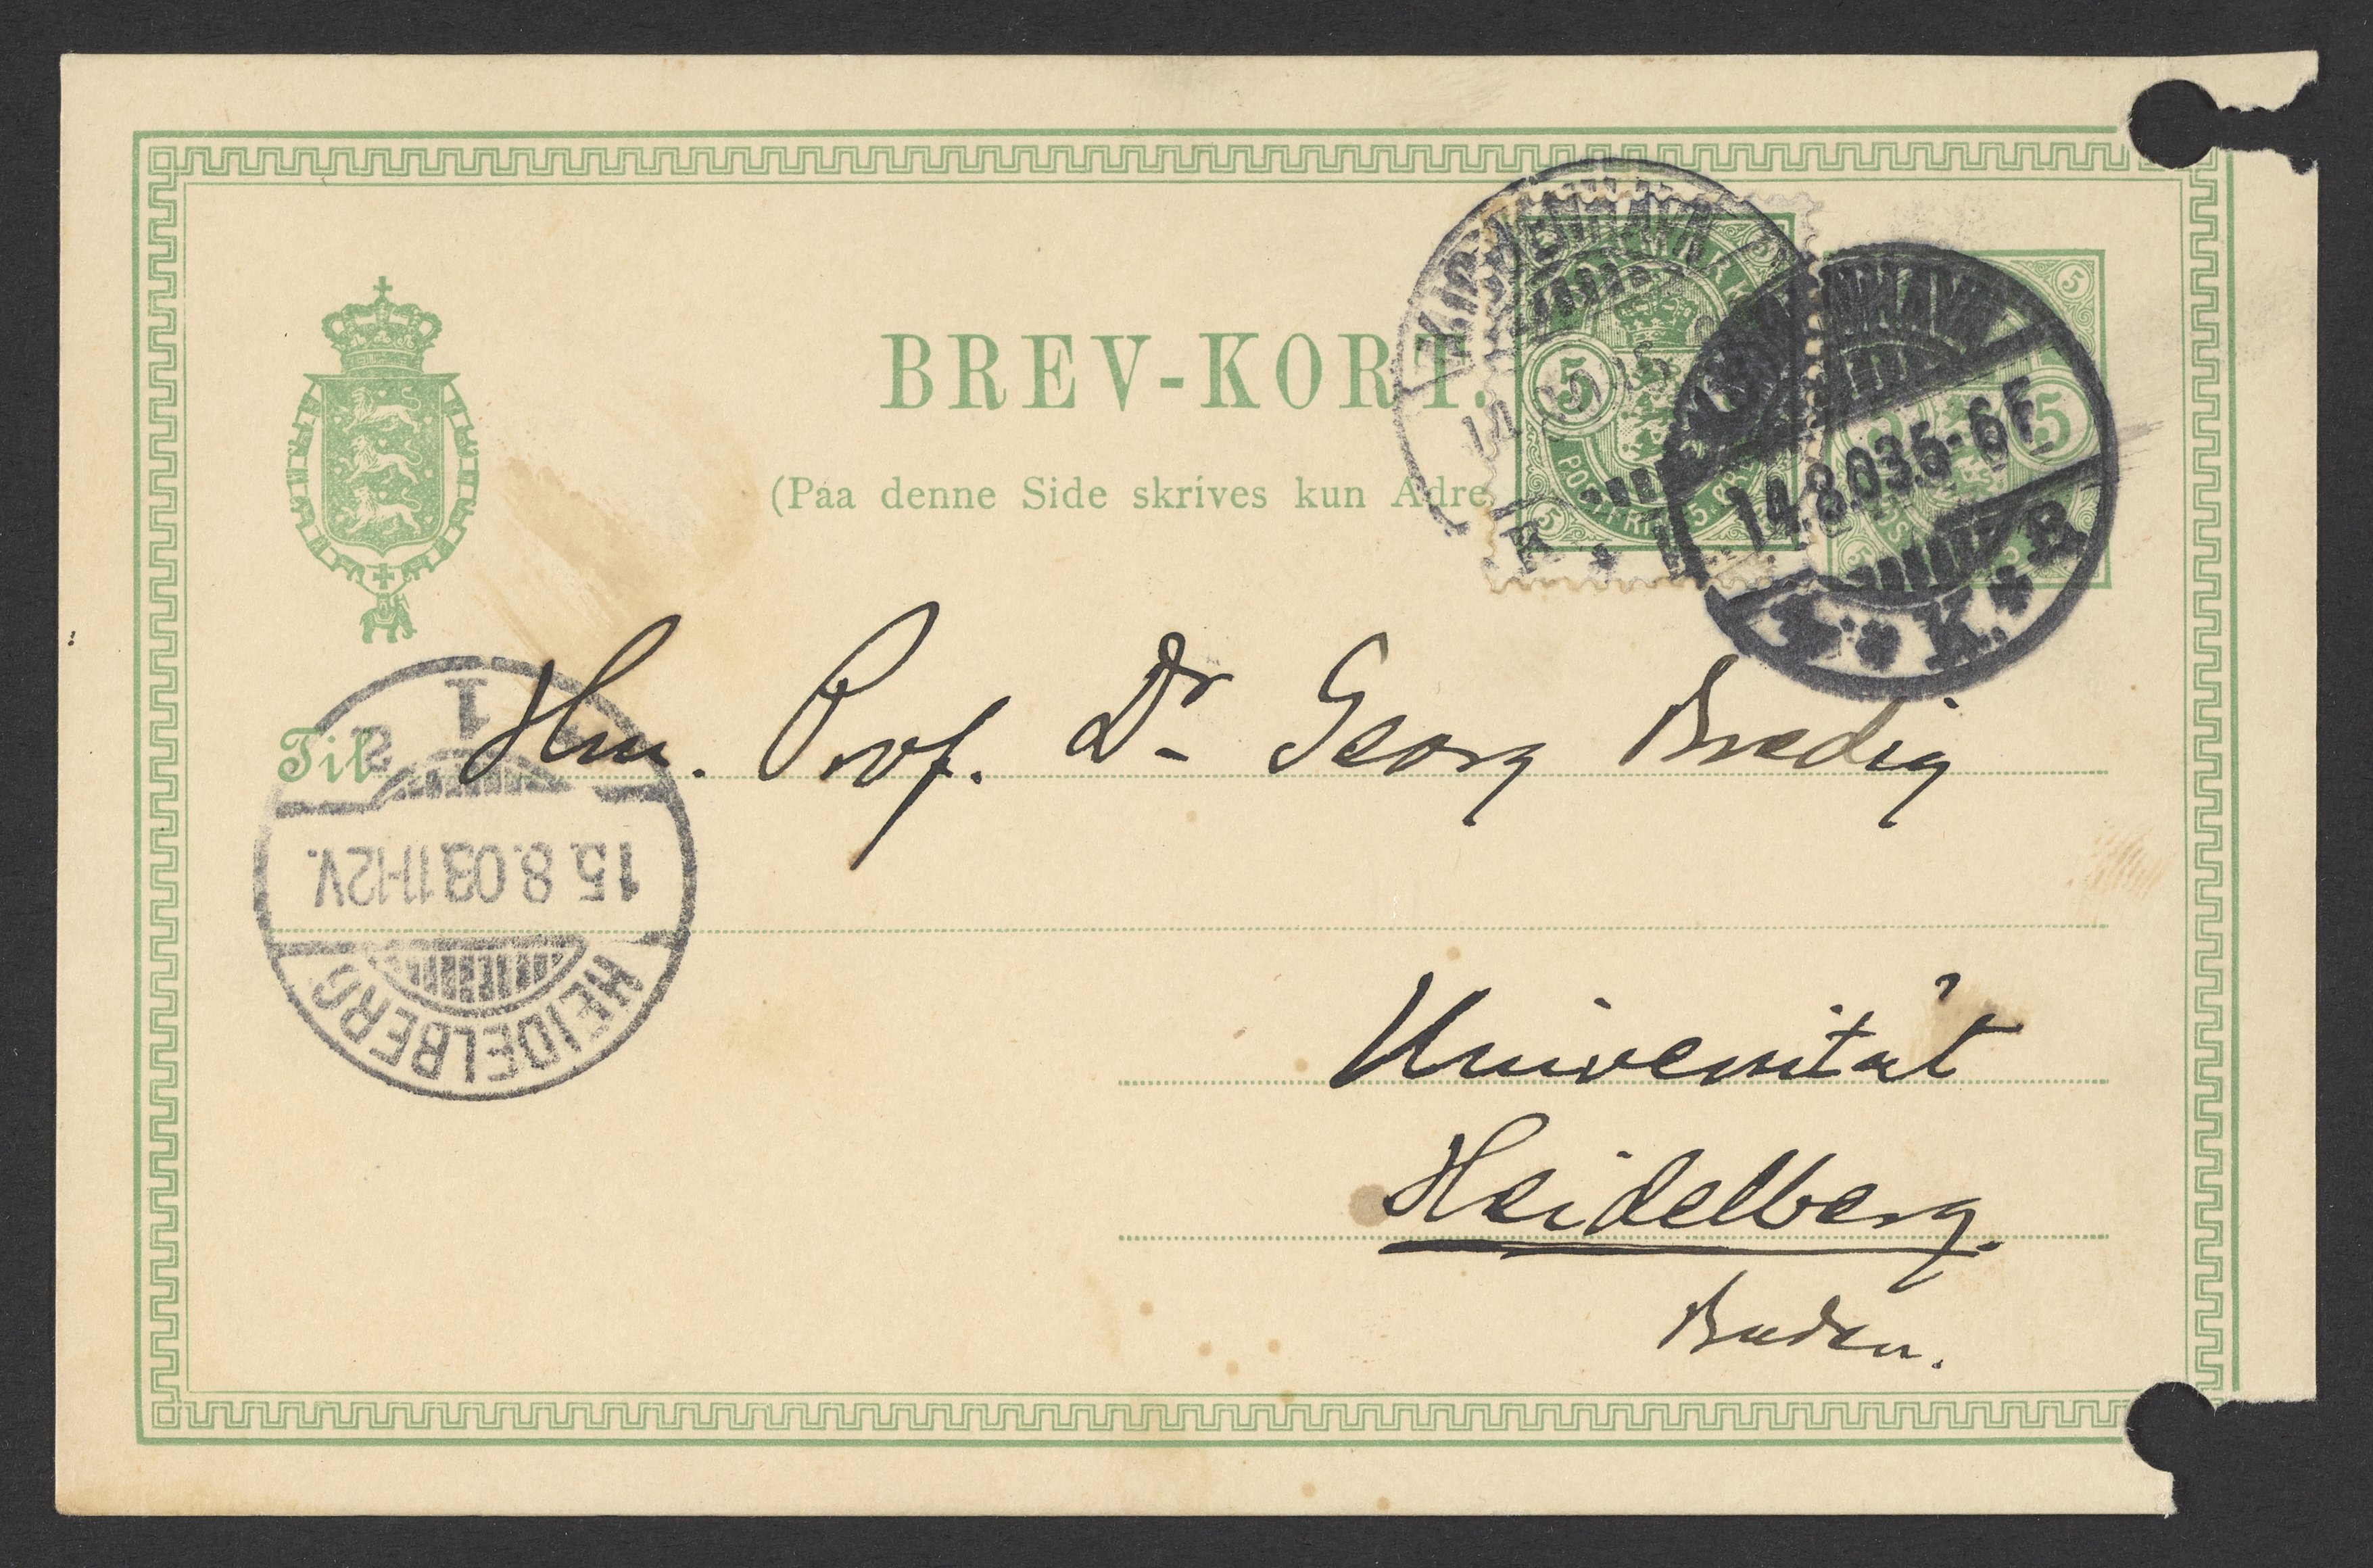 BREV-KORT.
(Paa denne Side skrives kun Adre
KJØBENHAVN
5
POSTFRIM
5
14.8.03 5-6 F
K.
Til Hrn. Prof. Dr Georg Bredig
1
15.8.03 11-12V.
HEIDELBERG
Universität
Heidelberg.
Baden.